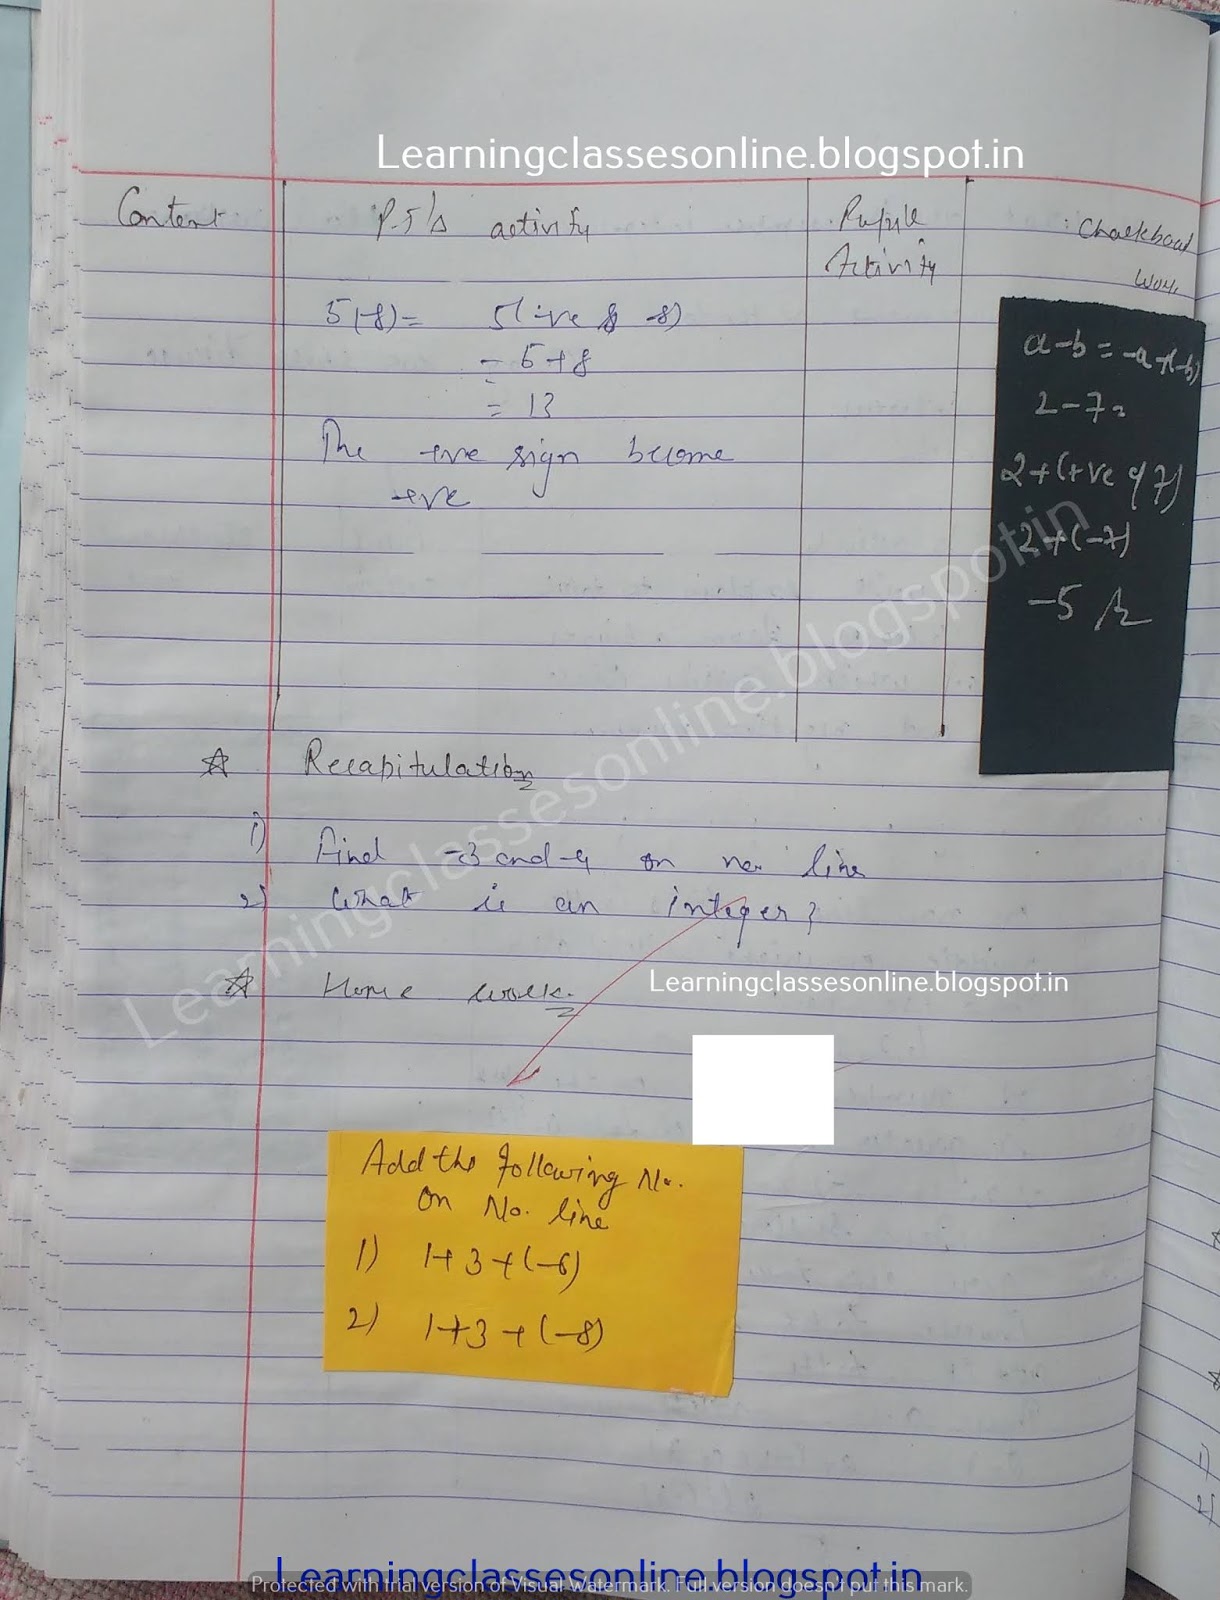 Learningclassesonline.blogspot.in
Content
P.T's activity
Pupils
Activity
Chalkboard
Work
5(-8)= 5(-ve & -8)
= 5+8
= 13
The +ve sign become
+ve
a-b = -a+(-b)
2-7=
2+(+ve of 7)
2+(-7)
-5
Recapitulation
1) Find -3 and -4 on no. line
2) What is an integer?
Learningclassesonline.blogspot.in
Home work.
Learningclassesonline.blogspot.in
Add the following No.
on No. line
1) 1+3+(-6)
2) 1+3+(-8)
Learningclassesonline.blogspot.in
Protected with trial version of Visual Watermark. Full version doesn't put this mark.